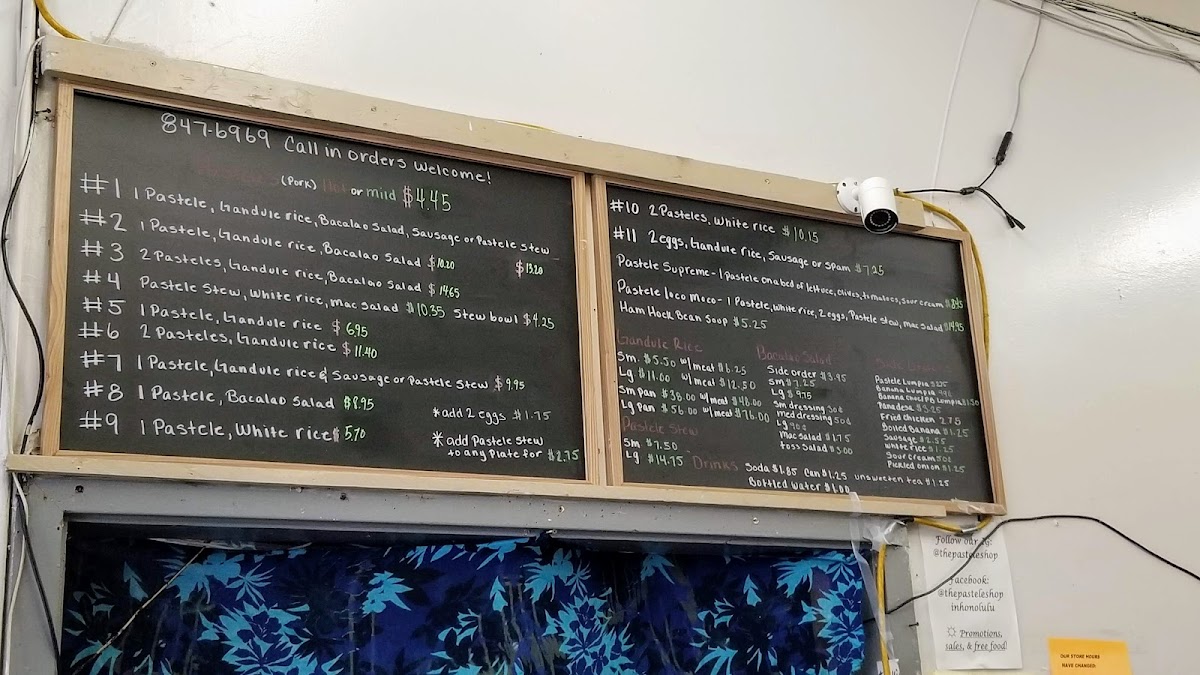 847-6969 Call in orders welcome!
(Pork) Hot or mild $4.45
#1 1 Pastele, Gandule rice, Bacalao Salad, Sausage or Pastele Stew $13.20
#2 1 Pastele, Gandule rice, Bacalao Salad $10.20
#3 2 Pasteles, Gandule rice, Bacalao Salad $14.65
#4 Pastele Stew, White rice, mac salad $10.35 Stew bowl $4.25
#5 1 Pastele, Gandule rice $6.95
#6 2 Pasteles, Gandule rice $11.40
#7 1 Pastele, Gandule rice & Sausage or Pastele Stew $9.95
#8 1 Pastele, Bacalao Salad $8.95
#9 1 Pastele, White rice $5.70
*add 2 eggs $1.75
*add Pastele stew
to any Plate for $2.75
#10 2 Pasteles, White rice $10.15
#11 2 eggs, Gandule rice, Sausage or Spam $7.25
Pastele Supreme- 1 pastele on a bed of lettuce, olives, tomatoes, sour cream $8.45
Pastele loco moco- 1 Pastele, white rice, 2 eggs, Pastele stew, mac salad $14.95
Ham Hock Bean Soup $5.25
Gandule Rice
Sm. $5.50 w/meat $6.25
Lg $11.00 w/meat $12.50
Sm pan $38.00 w/meat $48.00
Lg pan $56.00 w/meat $76.00
Pastele Stew
Sm $7.50
Lg $14.75
Bacalao Salad
Side order $3.95
Sm $7.25
Lg $9.75
Sm dressing 50¢
med dressing 50¢
Lg 90¢
Mac Salad $1.75
Toss Salad $3.00
Side Orders
Pastele Lumpia
Banana Lumpia
Banana Choc/PB Lumpia $1.50
Panadesa $3.25
Fried Chicken 2.75
Boiled Banana $1.25
Sausage $2.55
White rice $1.25
Sour cream 50¢
Pickled onion $1.25
Drinks Soda $1.85 Can $1.25 unsweeten tea $1.25
Bottled Water $1.00
Follow our IG:
@thepasteleshop
Facebook:
@thepasteleshop
inhonolulu
Promotions,
sales, & free food!
OUR STORE HOURS
HAVE CHANGED